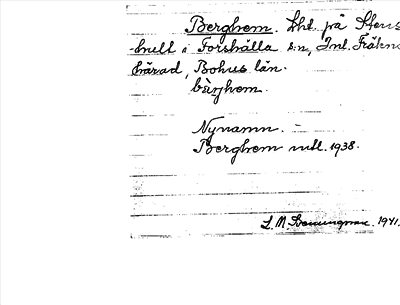 Berghem. Lht. på Stens
-kult i Forshälla s:n, Inl. Fräkne
härad, Bohus län.
bærhem.
Nynamn. -
Berghem mtl. 1938.
L. M. 1941.